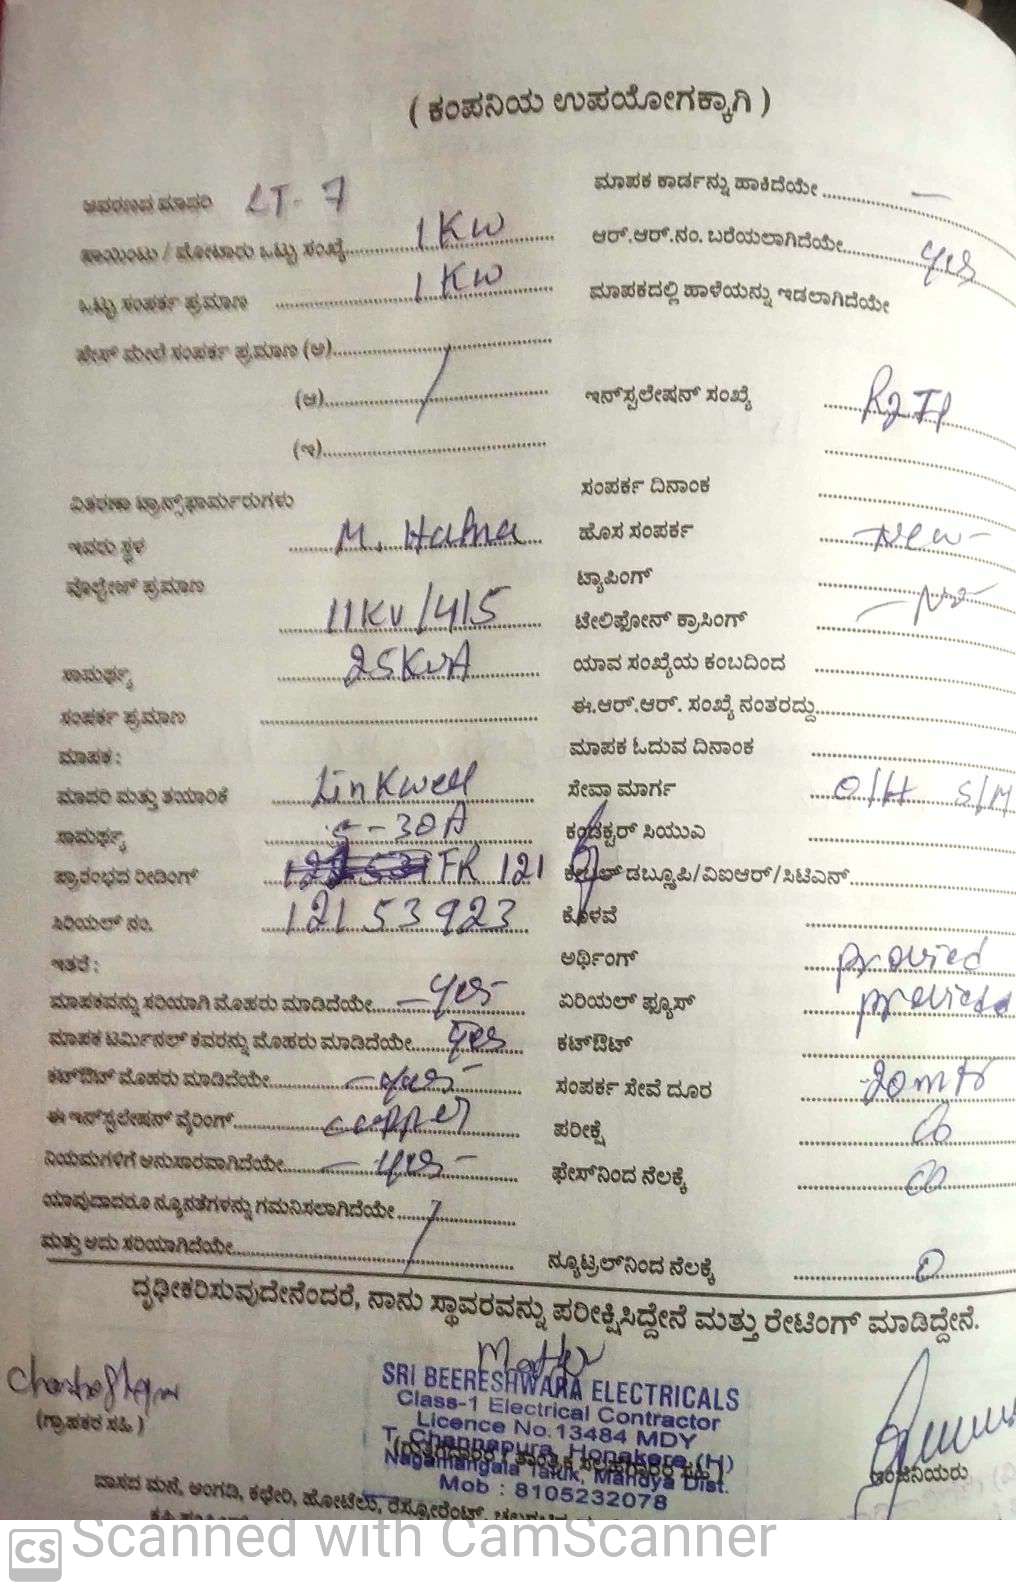 ( ಕಂಪನಿಯ ಉಪಯೋಗಕ್ಕಾಗಿ )
ಆವರಣದ ಮಾದರಿ LT-7
ಪಾಯಿಂಟು / ಮೋಟಾರು ಒಟ್ಟು ಸಂಖ್ಯೆ 1 KW
ಒಟ್ಟು ಸಂಪರ್ಕ ಪ್ರಮಾಣ 1 KW
ಫೇಸ್ ಮೇಲೆ ಸಂಪರ್ಕ ಪ್ರಮಾಣ (ಅ)
(ಆ)
(ಇ)
ವಿತರಣಾ ಟ್ರಾನ್ಸ್‌ಫಾರ್ಮರುಗಳು
ಇವರು ಸ್ಥಳ M.
ವೊಲ್ಟೇಜ್ ಪ್ರಮಾಣ
11KV/415
ಸಾಮರ್ಥ್ಯ 25KVA
ಸಂಪರ್ಕ ಪ್ರಮಾಣ
ಮಾಪಕ :
ಮಾದರಿ ಮತ್ತು ತಯಾರಿಕೆ Linkwell
ಸಾಮರ್ಥ್ಯ 5-30A
ಪ್ರಾರಂಭದ ರೀಡಿಂಗ್ FR 121
ಸಿರಿಯಲ್ ನಂ. 12153923
ಇತರೆ :
ಮಾಪಕವನ್ನು ಸರಿಯಾಗಿ ಮೊಹರು ಮಾಡಿದೆಯೇ -yes-
ಮಾಪಕ ಟರ್ಮಿನಲ್ ಕವರನ್ನು ಮೊಹರು ಮಾಡಿದೆಯೇ yes
ಕಟ್‌ಔಟ್ ಮೊಹರು ಮಾಡಿದೆಯೇ -yes-
ಈ ಇನ್‌ಸ್ಟಲೇಷನ್ ವೈರಿಂಗ್ copper
ನಿಯಮಗಳಿಗೆ ಅನುಸಾರವಾಗಿದೆಯೇ -yes-
ಯಾವುದಾದರೂ ನ್ಯೂನತೆಗಳನ್ನು ಗಮನಿಸಲಾಗಿದೆಯೇ
ಮತ್ತು ಅದು ಸರಿಯಾಗಿದೆಯೇ
ಮಾಪಕ ಕಾರ್ಡನ್ನು ಹಾಕಿದೆಯೇ -
ಆರ್.ಆರ್.ನಂ. ಬರೆಯಲಾಗಿದೆಯೇ yes
ಮಾಪಕದಲ್ಲಿ ಹಾಳೆಯನ್ನು ಇಡಲಾಗಿದೆಯೇ
ಇನ್‌ಸ್ಟಲೇಷನ್ ಸಂಖ್ಯೆ
ಸಂಪರ್ಕ ದಿನಾಂಕ
ಹೊಸ ಸಂಪರ್ಕ -New-
ಟ್ಯಾಪಿಂಗ್
ಟೇಲಿಫೋನ್ ಕ್ರಾಸಿಂಗ್ -No-
ಯಾವ ಸಂಖ್ಯೆಯ ಕಂಬದಿಂದ
ಈ.ಆರ್.ಆರ್. ಸಂಖ್ಯೆ ನಂತರದ್ದು
ಮಾಪಕ ಓದುವ ದಿನಾಂಕ
ಸೇವಾ ಮಾರ್ಗ O/H S/M
ಕಂಡಕ್ಟರ್ ಸಿಯುಎ
ಕೇಬಲ್ ಡಬ್ಲ್ಯೂಪಿ/ವಿಐಆರ್/ಸಿಟಿಎನ್
ಕೊಳವೆ
ಅರ್ಥಿಂಗ್ provied
ಏರಿಯಲ್ ಫ್ಯೂಸ್
ಕಟ್‌ಔಟ್
ಸಂಪರ್ಕ ಸೇವೆ ದೂರ 20mtr
ಪರೀಕ್ಷೆ
ಫೇಸ್‌ನಿಂದ ನೆಲಕ್ಕೆ
ನ್ಯೂಟ್ರಲ್‌ನಿಂದ ನೆಲಕ್ಕೆ 0
ದೃಢೀಕರಿಸುವುದೇನೆಂದರೆ, ನಾನು ಸ್ಥಾವರವನ್ನು ಪರೀಕ್ಷಿಸಿದ್ದೇನೆ ಮತ್ತು ರೇಟಿಂಗ್ ಮಾಡಿದ್ದೇನೆ.
(ಗ್ರಾಹಕರ ಸಹಿ )
SRI BEERESHWARA ELECTRICALS
Class-1 Electrical Contractor
Licence No.13484 MDY
T. Channapura, Honakere (H)
Nagamangala Taluk, Mandya Dist.
Mob : 8105232078
ಇಂಜಿನಿಯರು
ವಾಸದ ಮನೆ, ಅಂಗಡಿ, ಕಛೇರಿ, ಹೋಟೆಲು, ರೆಸ್ಟೋರೆಂಟ್,
CS Scanned with CamScanner